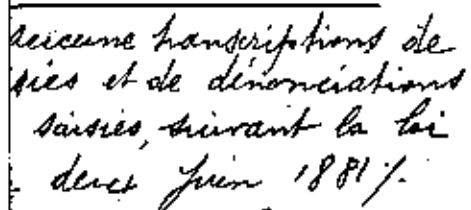 aucune transcriptions de
sies et de dénonciations
saisies, suivant la loi
deux juin 1881 /.